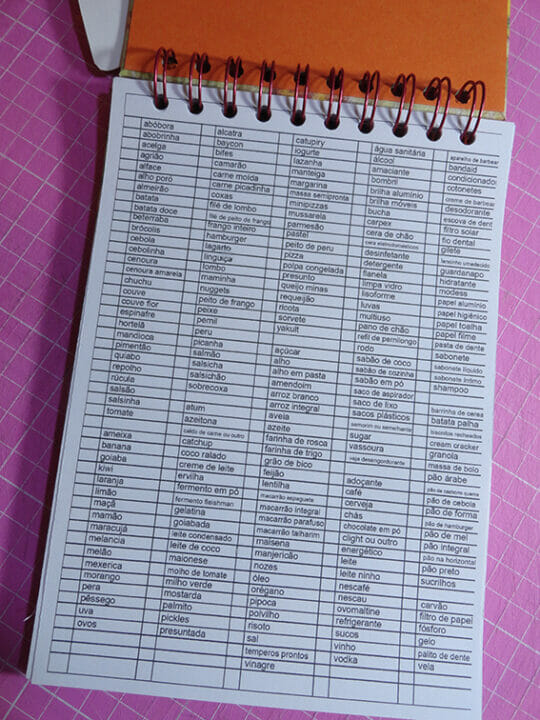 abóbora
abobrinha
acelga
agrião
alface
alho poró
almeirão
batata
batata doce
beterraba
brócolis
cebola
cebolinha
cenoura
cenoura amarela
chuchu
couve
couve flor
espinafre
hortelã
mandioca
pimentão
quiabo
repolho
rúcula
salsão
salsinha
tomate
ameixa
banana
goiaba
kiwi
laranja
limão
maçã
mamão
maracujá
melancia
melão
mexerica
morango
pera
pêssego
uva
ovos
alcatra
baycon
bifes
camarão
carne moida
carne picadinha
coxas
filé de lombo
filé de peito de frango
frango inteiro
hamburger
lagarto
linguiça
lombo
maminha
nuggets
peito de frango
peixe
pernil
peru
picanha
salmão
salsicha
salsichão
sobrecoxa
atum
azeitona
caldo de carne ou outro
catchup
coco ralado
creme de leite
ervilha
fermento em pó
fermento fleishman
gelatina
goiabada
leite condensado
leite de coco
maionese
molho de tomate
milho verde
mostarda
palmito
pickles
presuntada
catupiry
iogurte
lazanha
manteiga
margarina
massa semipronta
minipizzas
mussarela
parmesão
pastel
peito de peru
pizza
polpa congelada
presunto
queijo minas
requeijão
ricota
sorvete
yakult
açúcar
alho
alho em pasta
amendoim
arroz branco
arroz integral
aveia
azeite
farinha de rosca
farinha de trigo
grão de bico
feijão
lentilha
macarrão espaguete
macarrão integral
macarrão parafuso
macarrão talharim
maisena
manjericão
nozes
óleo
orégano
pipoca
polvilho
risoto
sal
temperos prontos
vinagre
água sanitária
álcool
amaciante
bombril
brilha alumínio
brilha móveis
bucha
carpex
cera de chão
cera eletrodomésticos
desinfetante
detergente
flanela
limpa vidro
lisoforme
luvas
multiuso
pano de chão
refil de pernilongo
rodo
sabão de coco
sabão de cozinha
sabão em pó
saco de aspirador
saco de lixo
sacos plásticos
semorim ou semelhante
sugar
vassoura
veja desengordurante
adoçante
café
cerveja
chás
chocolate em pó
clight ou outro
energético
leite
leite ninho
nescafé
nescau
ovomaltine
refrigerante
sucos
vinho
vodka
aparelho de barbear
bandaid
condicionador
cotonetes
creme de barbear
desodorante
escova de dent
filtro solar
fio dental
gilete
lencinho umedecido
guardanapo
hidratante
modess
papel alumínio
papel higiênico
papel toalha
papel filme
pasta de dente
sabonete
sabonete líquido
sabonete íntimo
shampoo
barrinha de cerea
batata palha
biscoitos recheados
cream cracker
granola
massa de bolo
pão árabe
pão de cachorro quente
pão de cebola
pão de forma
pão de hamburger
pão de mel
pão integral
pão na horizontal
pão preto
sucrilhos
carvão
filtro de papel
fósforo
gelo
palito de dente
vela